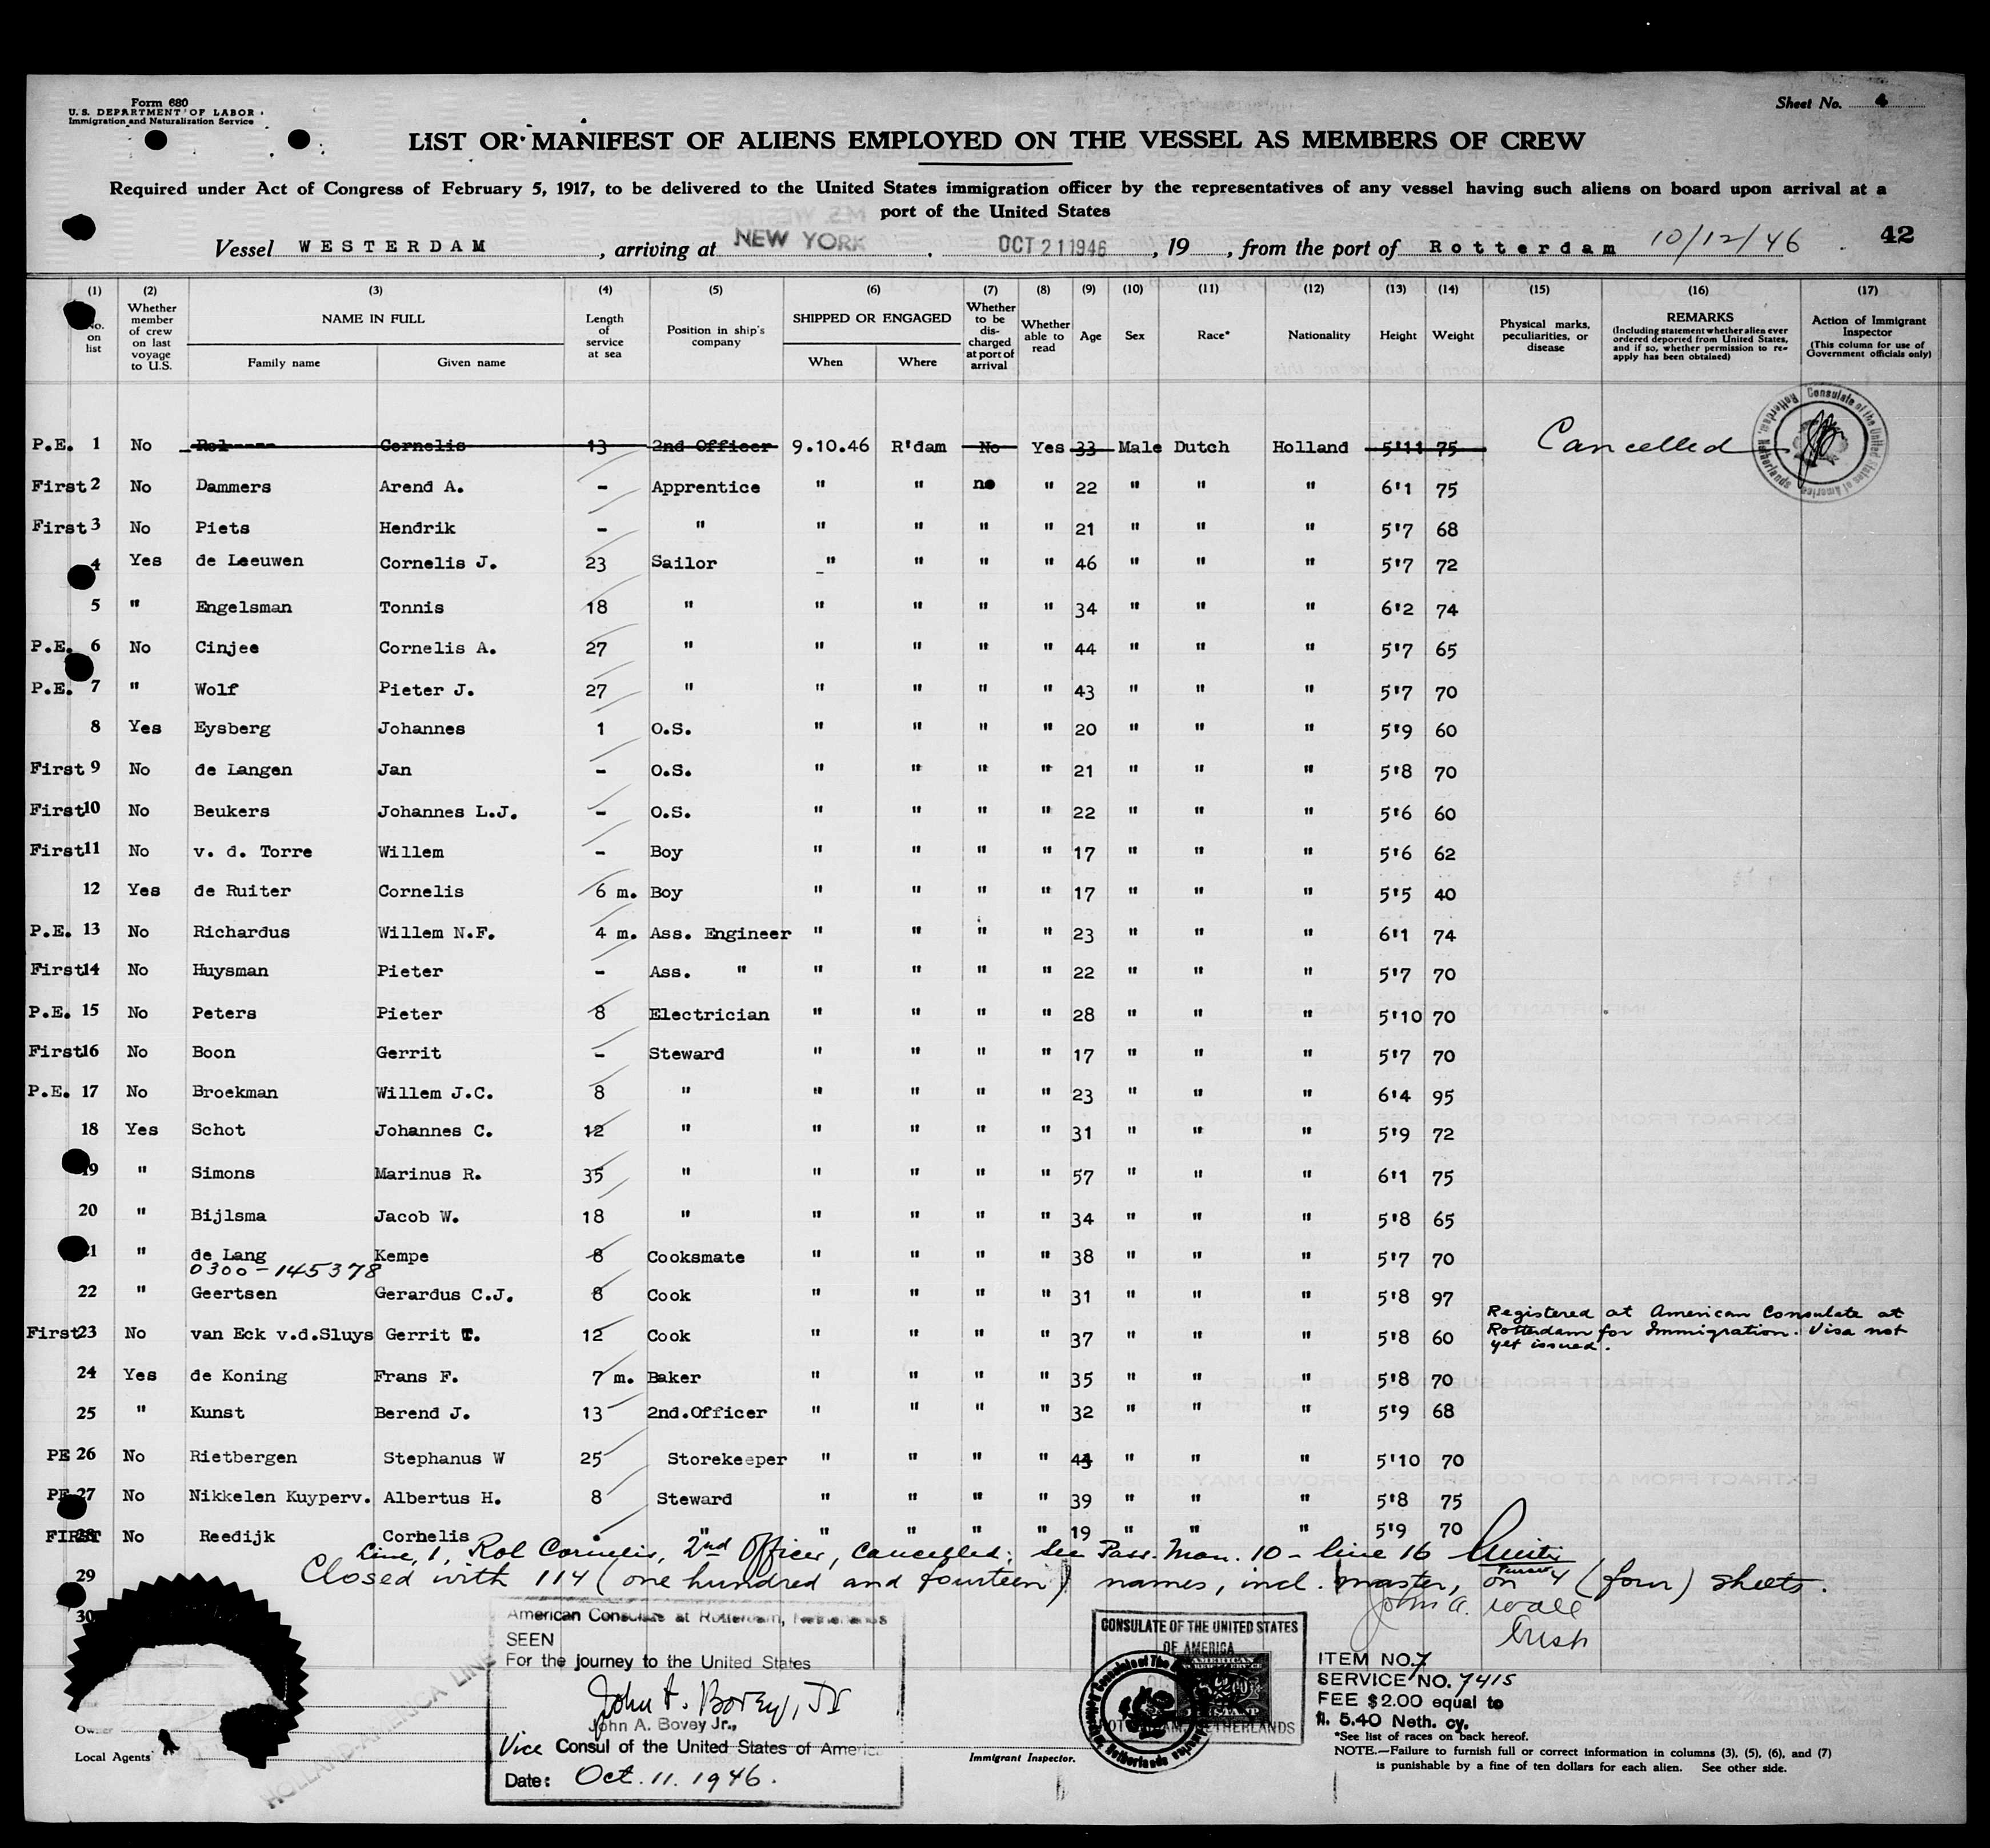 Form 680
U.S. DEPARTMENT OF LABOR
Immigration and Naturalization Service
Sheet No. 4
LIST OR MANIFEST OF ALIENS EMPLOYED ON THE VESSEL AS MEMBERS OF CREW
Required under Act of Congress of February 5, 1917, to be delivered to the United States immigration officer by the representatives of any vessel having such aliens on board upon arrival at a
port of the United States
Vessel WESTERDAM, arriving at NEW YORK, OCT 21 1946, 19, from the port of Rotterdam 10/12/46 42
(1) No. on list
(2) Whether member of crew on last voyage to U.S.
(3) NAME IN FULL Family name Given name
(4) Length of service at sea
(5) Position in ship's company
(6) SHIPPED OR ENGAGED When Where
(7) Whether to be discharged at port of arrival
(8) Whether able to read
(9) Age
(10) Sex
(11) Race*
(12) Nationality
(13) Height
(14) Weight
(15) Physical marks, peculiarities, or disease
(16) REMARKS (Including statement whether alien ever ordered deported from United States, and if so, whether permission to re-apply has been obtained)
(17) Action of Immigrant Inspector (This column for use of Government officials only)
P.E. 1 No Rol Cornelis 13 2nd Officer 9.10.46 R'dam No Yes 33 Male Dutch Holland 5'11 75 Cancelled
First 2 No Dammers Arend A. - Apprentice " " no " 22 " " " 6'1 75
First 3 No Piets Hendrik - " " " " " 21 " " " 5'7 68
4 Yes de Leeuwen Cornelis J. 23 Sailor " " " " 46 " " " 5'7 72
5 " Engelsman Tonnis 18 " " " " " 34 " " " 6'2 74
P.E. 6 No Cinjee Cornelis A. 27 " " " " " 44 " " " 5'7 65
P.E. 7 " Wolf Pieter J. 27 " " " " " 43 " " " 5'7 70
8 Yes Eysberg Johannes 1 O.S. " " " " 20 " " " 5'9 60
First 9 No de Langen Jan - O.S. " " " " 21 " " " 5'8 70
First 10 No Beukers Johannes L.J. - O.S. " " " " 22 " " " 5'6 60
First 11 No v. d. Torre Willem - Boy " " " " 17 " " " 5'6 62
12 Yes de Ruiter Cornelis 6 m. Boy " " " " 17 " " " 5'5 40
P.E. 13 No Richardus Willem N.F. 4 m. Ass. Engineer " " " " 23 " " " 6'1 74
First 14 No Huysman Pieter - Ass. " " " " " 22 " " " 5'7 70
P.E. 15 No Peters Pieter 8 Electrician " " " " 28 " " " 5'10 70
First 16 No Boon Gerrit - Steward " " " " 17 " " " 5'7 70
P.E. 17 No Broekman Willem J.C. 8 " " " " " 23 " " " 6'4 95
18 Yes Schot Johannes C. 12 " " " " " 31 " " " 5'9 72
19 " Simons Marinus R. 35 " " " " " 57 " " " 6'1 75
20 " Bijlsma Jacob W. 18 " " " " " 34 " " " 5'8 65
21 " de Lang Kempe 8 Cooksmate " " " " 38 " " " 5'7 70
0300-145378
22 " Geertsen Gerardus C.J. 8 Cook " " " " 31 " " " 5'8 97
First 23 No van Eck v.d.Sluys Gerrit T. 12 Cook " " " " 37 " " " 5'8 60
Registered at American Consulate at
Rotterdam for Immigration. Visa not
yet issued.
24 Yes de Koning Frans F. 7 m. Baker " " " " 35 " " " 5'8 70
25 " Kunst Berend J. 13 2nd.Officer " " " " 32 " " " 5'9 68
PE 26 No Rietbergen Stephanus W 25 Storekeeper " " " " " " " 5'10 70
PE 27 No Nikkelen Kuyperv. Albertus H. 8 Steward " " " " 39 " " " 5'8 75
FIRST 28 No Reedijk Cornelis " " " " " 19 " " " 5'9 70
Line, 1, Rol Cornelis, 2nd Officer, cancelled; See Pass. Man. 10 - line 16
29 Closed with 114 (one hundred and fourteen) names, incl. master, on 4 (four) sheets.
30
John A. Wall
American Consulate at Rotterdam, Netherlands
SEEN
For the journey to the United States
John A. Bovey, Jr
John A. Bovey Jr.,
Vice Consul of the United States of America
Date: Oct. 11. 1946.
CONSULATE OF THE UNITED STATES
OF AMERICA
ROTTERDAM, NETHERLANDS
ITEM NO. 7
SERVICE NO. 7415
FEE $2.00 equal to
fl. 5.40 Neth. cy.
*See list of races on back hereof.
NOTE.—Failure to furnish full or correct information in columns (3), (5), (6), and (7)
is punishable by a fine of ten dollars for each alien. See other side.
Owner
Local Agents
HOLLAND-AMERICA LINE
Immigrant Inspector.